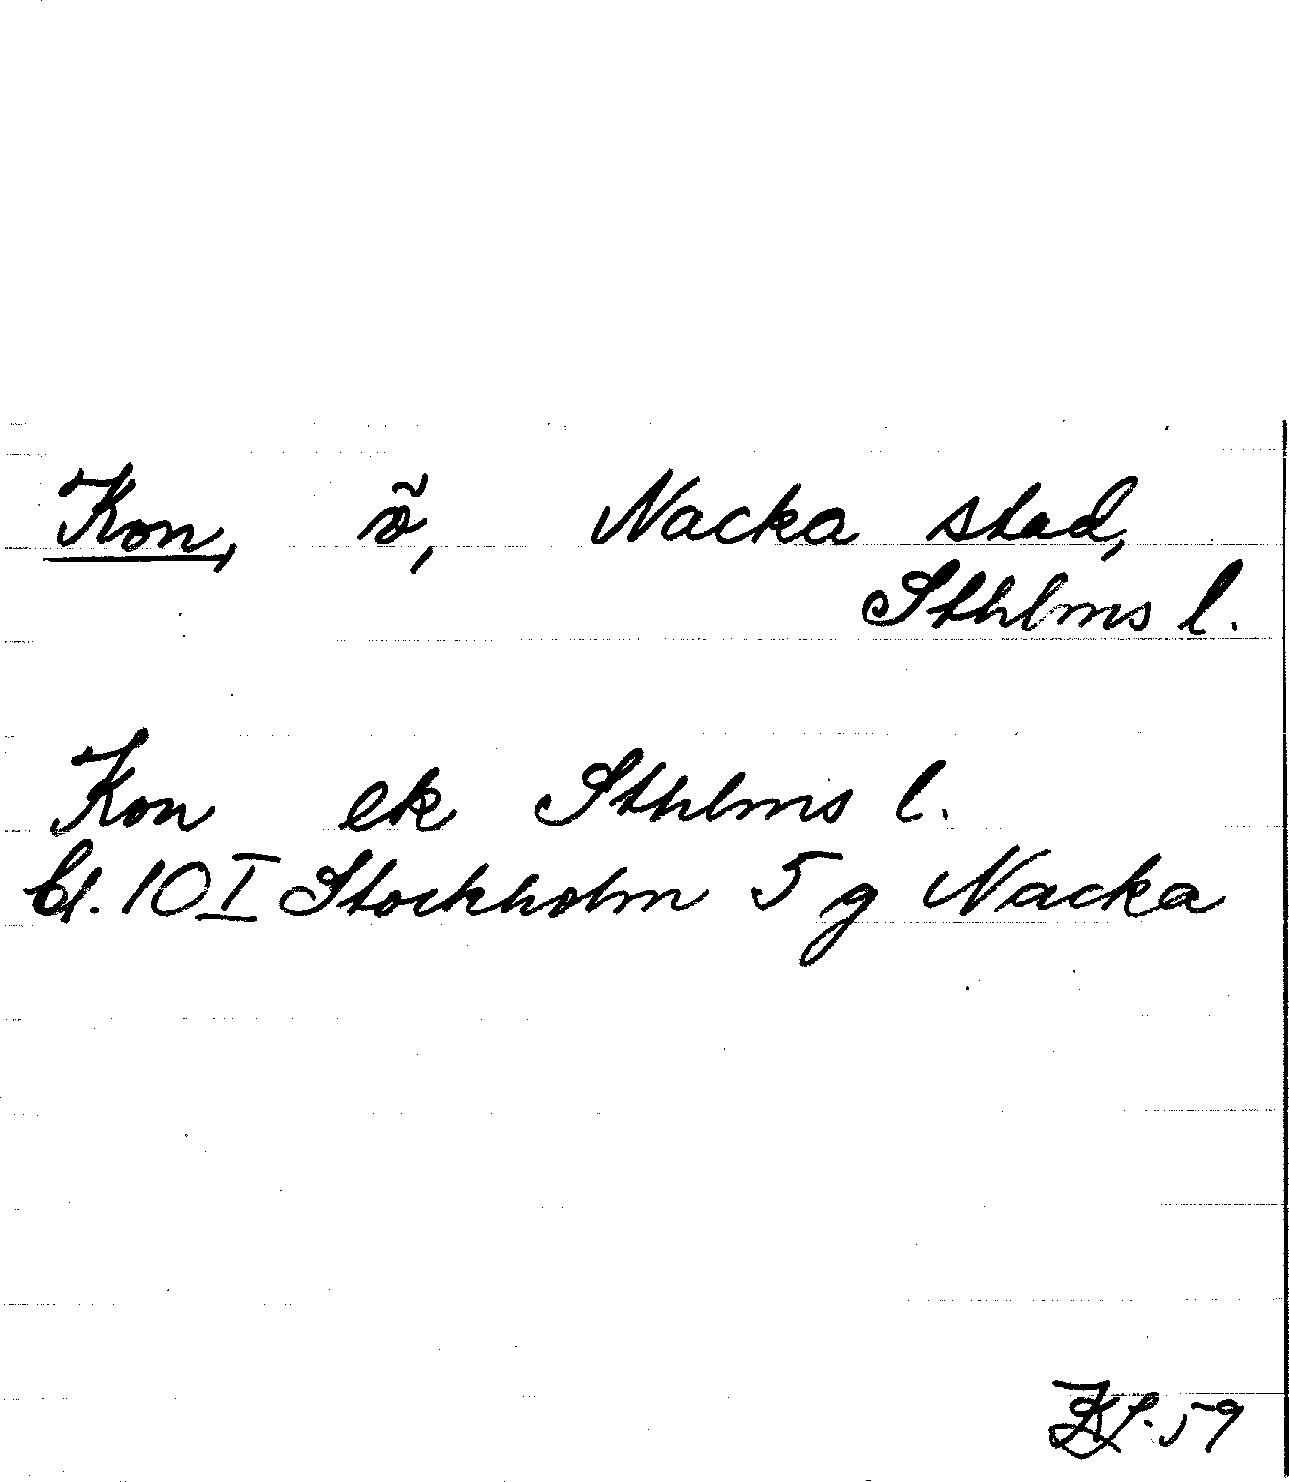 Kon, ö, Nacka stad,
Sthlms l.
Kon ek Sthlms l.
bl. 10 I Stockholm 5 g Nacka
59